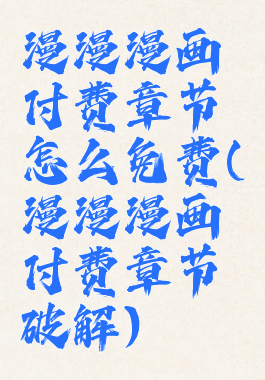 漫漫漫画
付费章节
怎么免费(
漫漫漫画
付费章节
破解)